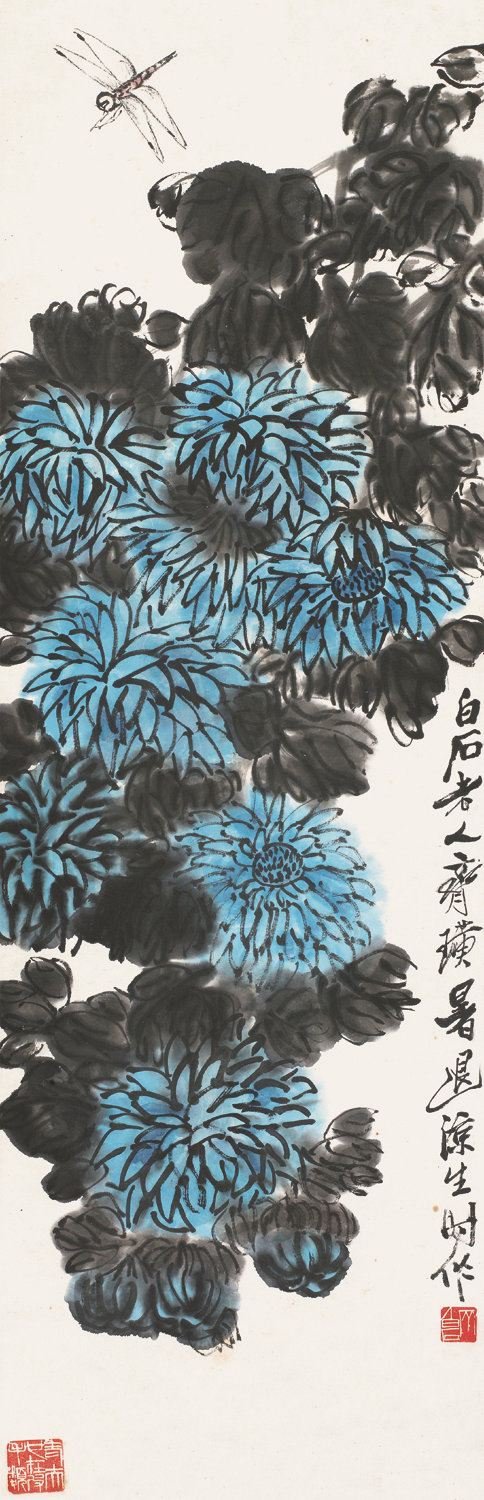 白石老人齊璜暑退涼生時作